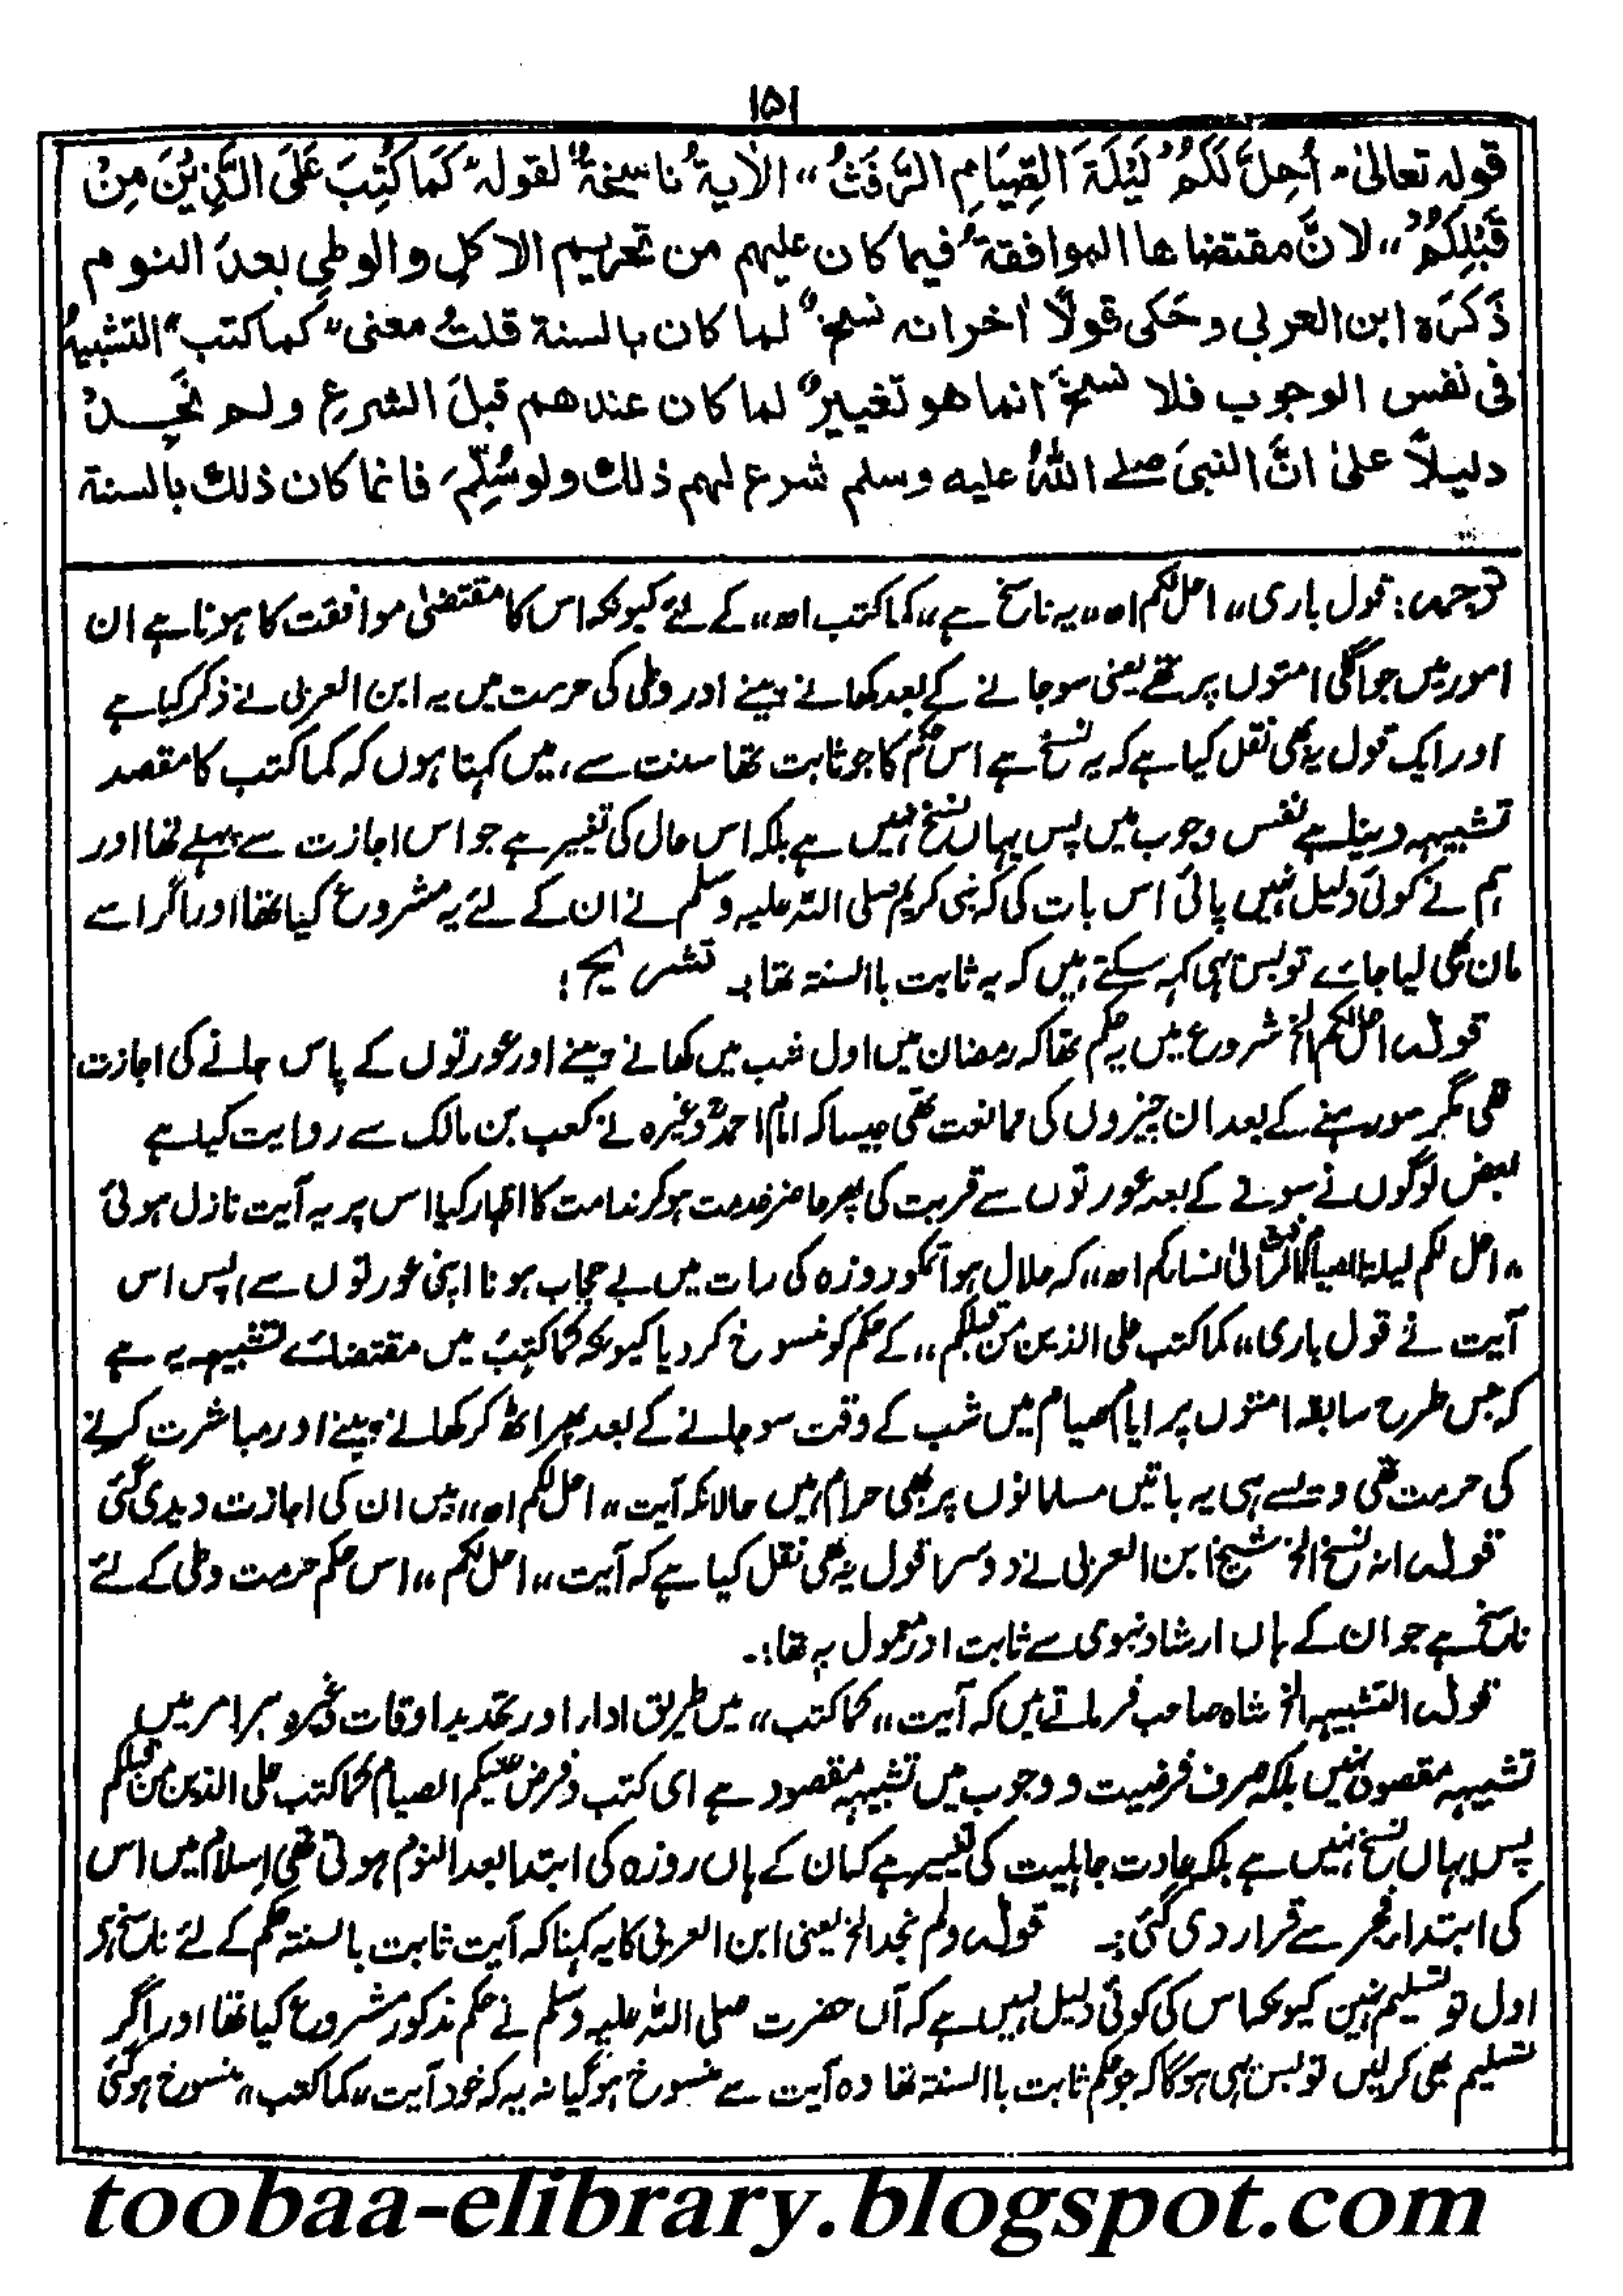 ۱۵۱
قولہ تعالیٰ" اُحِلَّ لَکُمْ لَیْلَۃَ الصِّیَامِ الرَّفَثُ" الاٰیۃُ ناسخۃٌ لقولہ" کَمَا کُتِبَ عَلَی الَّذِیْنَ مِنْ
قَبْلِکُمْ" لانَّ مقتضاھا الموافقۃُ فیما کان علیھم من تحریم الاکلِ والوطیِ بعدَ النوم
ذَکَرَہ ابن العربی وحَکی قولًا اٰخرانہ نسخٌ لما کان بالسنۃ قلتُ معنی" کما کتب" التشبیہُ
فی نفس الوجوب فلا نسخَ انما ھو تغییرٌ لما کان عندھم قبلَ الشرع ولم نَجِدْ
دلیلًا علیٰ انَّ النبیَ صلے اللہُ علیہ وسلم شرع لھم ذلک ولو سُلِّمَ فانما کان ذلک بالسنۃ
ترجمہ: قول باری "احل لکم اھ" یہ ناسخ ہے "کما کتب اھ" کے لئے کیونکہ اس کا مقتضیٰ موافقت کا ہونا ہے ان
امور میں جو اگلی امتوں پر تھے یعنی سوجانے کے بعد کھانے پینے اور وطی کی حرمت میں یہ ابن العربی نے ذکر کیا ہے
اور ایک قول یہ بھی نقل کیا ہے کہ یہ نسخ ہے اس حکم کا جو ثابت تھا سنت سے، میں کہتا ہوں کہ کما کتب کا مقصد
تشبیہہ دینا ہے نفس وجوب میں پس یہاں نسخ نہیں ہے بلکہ اس حال کی تغییر ہے جو اس اجازت سے پہلے تھا اور
ہم نے کوئی دلیل نہیں پائی اس بات کی کہ نبی کریم صلی اللہ علیہ وسلم نے ان کے لئے یہ مشروع کیا تھا اور اگر اسے
مان بھی لیا جائے تو بس یہی کہہ سکتے ہیں کہ یہ ثابت باالسنۃ تھا۔ تشریح!
قولہ احل لکم الخ شروع میں یہ حکم تھا کہ رمضان میں اول شب میں کھانے پینے اور عورتوں کے پاس جانے کی اجازت
تھی مگر سو رہنے کے بعد ان چیزوں کی ممانعت تھی جیسا کہ امام احمدؒ وغیرہ نے کعب بن مالک سے روایت کیا ہے
بعض لوگوں نے سونے کے بعد عورتوں سے قربت کی پھر حاضر خدمت ہوکر ندامت کا اظہار کیا اس پر یہ آیت نازل ہوئی
"احل لکم لیلۃ الصیام الرفث الی نسائکم اھ" کہ حلال ہوا تمکو روزہ کی رات میں بے حجاب ہونا اپنی عورتوں سے، پس اس
آیت نے قول باری "کما کتب علی الذین من قبلکم" کے حکم کو منسوخ کردیا کیونکہ کما کتب میں مقتضائے تشبیہہ یہ ہے
کہ جس طرح سابقہ امتوں پر ایام صیام میں شب کے وقت سوجانے کے بعد پھر اٹھ کر کھانے پینے اور مباشرت کرنے
کی حرمت تھی ویسے ہی یہ باتیں مسلمانوں پر بھی حرام ہیں حالانکہ آیت "احل لکم اھ" میں ان کی اجازت دیدی گئی
قولہ انہ نسخ الخ شیخ ابن العربی نے دوسرا قول یہ بھی نقل کیا ہے کہ آیت "احل لکم" اس حکم حرمت وطی کے لئے
ناسخ ہے جو ان کے ہاں ارشاد نبوی سے ثابت اور معمول بہ تھا:۔
قولہ التشبیہہ الخ شاہ صاحب فرماتے ہیں کہ آیت "کما کتب" میں طریق ادار اور تحدید اوقات وغیرہ ہر امر میں
تشبیہہ مقصود نہیں بلکہ صرف فرضیت و وجوب میں تشبیہہ مقصود ہے ای کتب وفرض علیکم الصیام کما کتب علی الذین من قبلکم
پس یہاں نسخ نہیں ہے بلکہ عادت جاہلیت کی تغییر ہے کہ ان کے ہاں روزہ کی ابتدا بعد النوم ہوتی تھی اسلام میں اس
کی ابتدار فجر سے قرار دی گئی:۔ قولہ ولم نجد الخ یعنی ابن العربی کا یہ کہنا کہ آیت ثابت بالسنتہ حکم کے لئے ناسخ ہے
اول تو تسلیم نہیں کیونکہ اس کی کوئی دلیل نہیں ہے کہ آں حضرت صلی اللہ علیہ وسلم نے حکم مذکور مشروع کیا تھا اور اگر
تسلیم بھی کرلیں تو بس یہی ہوگا کہ جو حکم ثابت باالسنتہ تھا وہ آیت سے منسوخ ہوگیا نہ یہ کہ خود آیت "کما کتب" منسوخ ہوگئی
toobaa-elibrary.blogspot.com